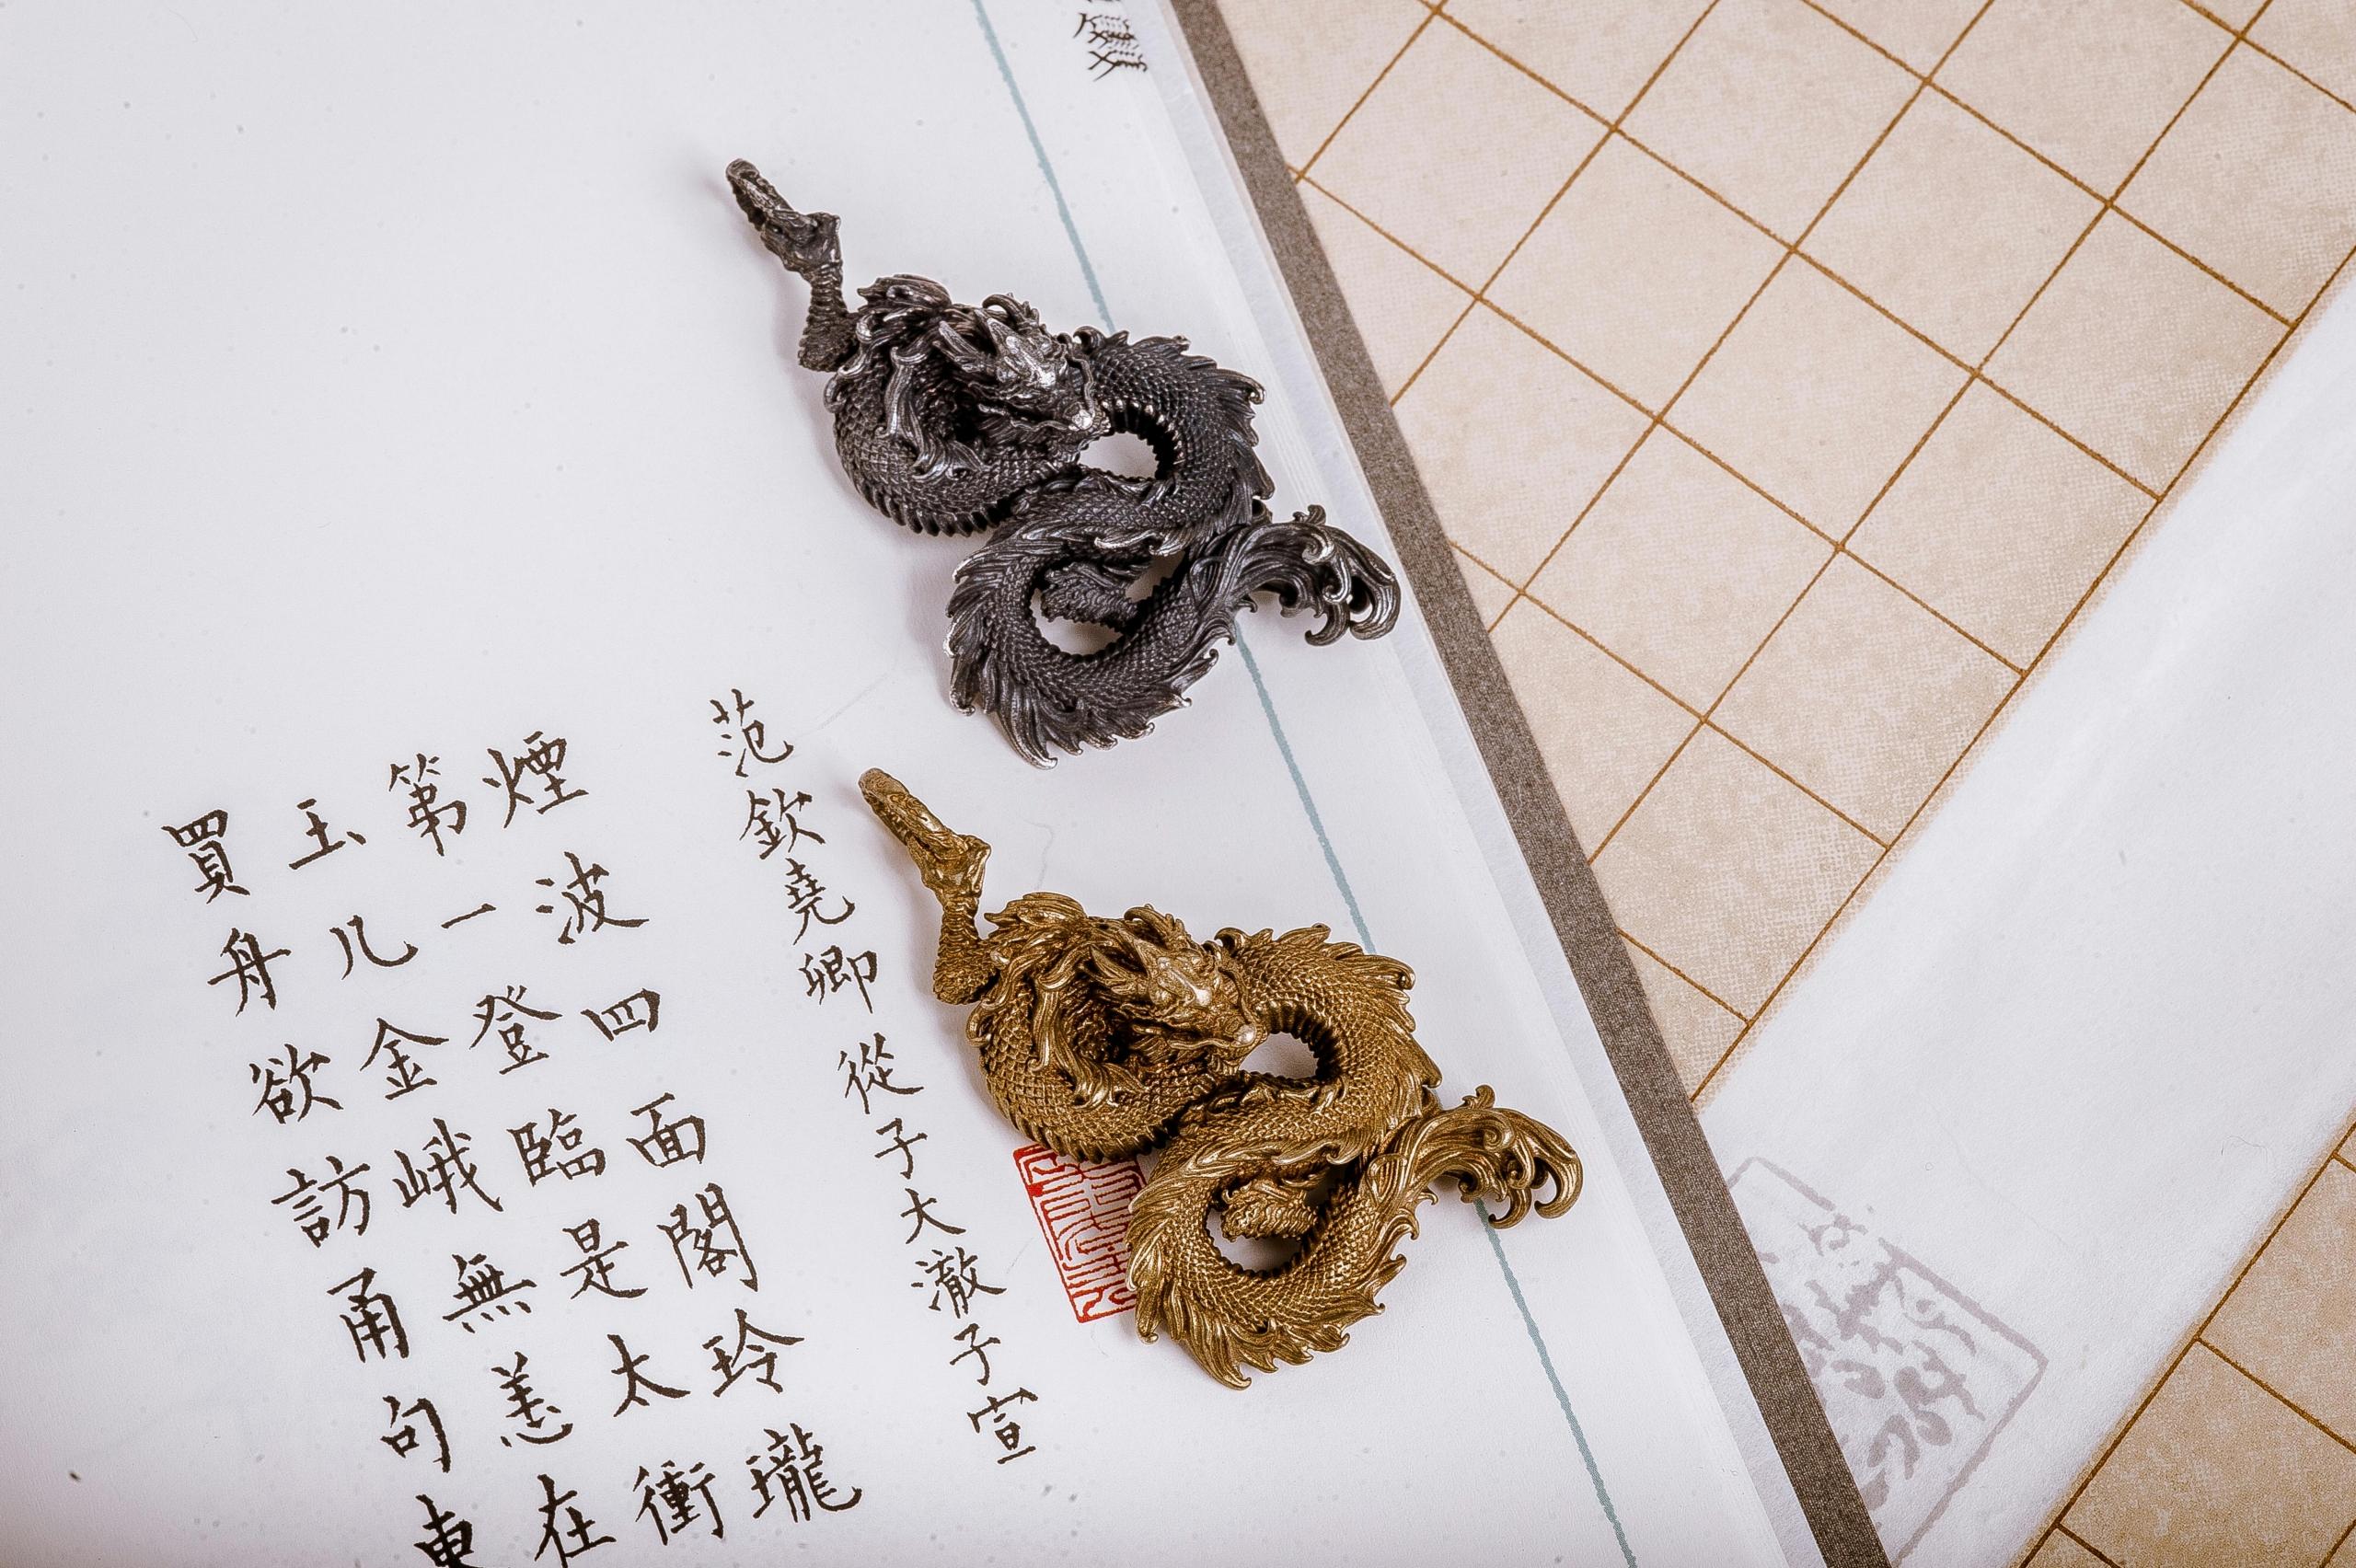 范欽堯卿從子大澈子宣
煙波四面閣玲瓏
第一登臨是太衝
玉几金峨無恙在
買舟欲訪甬句東